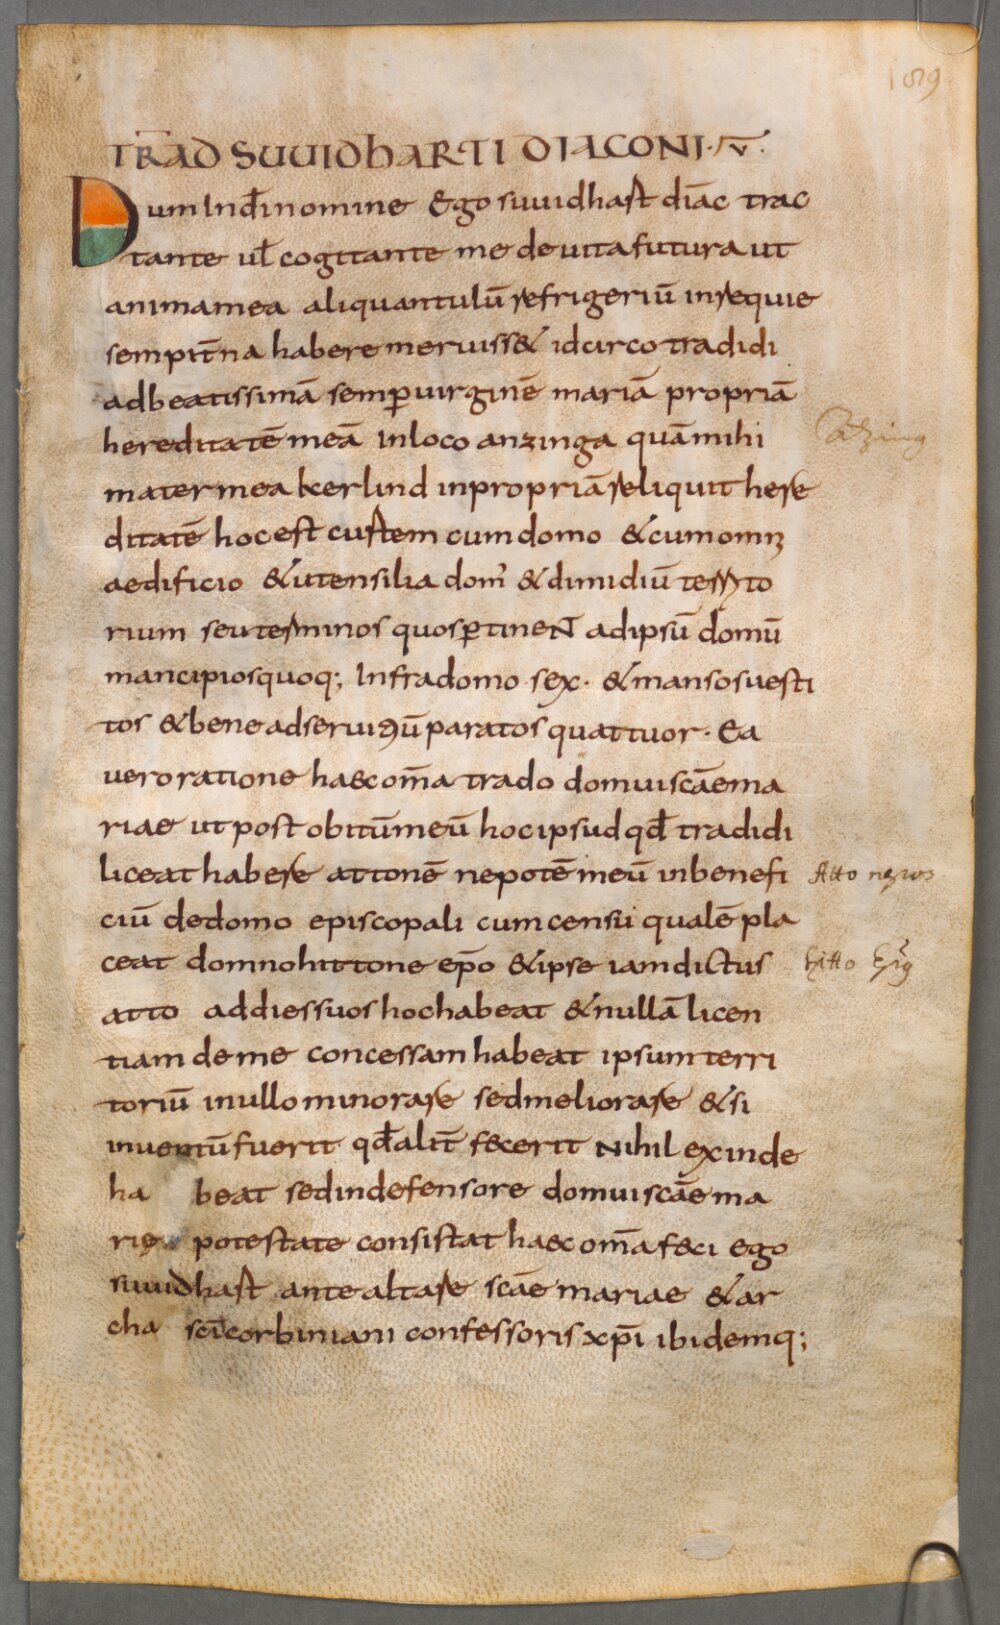 189
TRAD SUUIDHARTI DIACONI·
Dum In dī nomine Ego suuidhart diac̄ trac
tante ul̄ cogitante me de uita futura ut
anima mea aliquantulū refrigeriū in requie
sempit̄na habere meruiss& idcirco tradidi
ad beatissimā semp̄ uirginē mariā propriā
hereditatē meā in loco anzinga quā mihi
Anzing
mater mea kerlind in propriā reliquit here
ditatē hoc est curtem cum domo & cum omni
aedificio & utensilia dom' & dimidiū terri to
rium seu terminos quos ꝑtineN̄ ad ipsū domū
mancipios quoq; Infra domo sex· & mansos uesti
tos & bene ad seruitiū paratos quattuor· Ea
uero ratione haec om̄a trado domui sc̄ae ma
riae ut post obitū meū hoc ipsud qđ tradidi
liceat habere attonē nepotē meū in benefi
Atto nepos
ciū de domo episcopali cum censu qualē pla
ceat domno hittone ep̄o & ipse iam dictus
hitto Ep̄s
atto ad dies suos hoc habeat & nullā licen
tiam de me concessam habeat ipsum terri
toriū in ullo minorare sed meliorare & si
inuentū fuerit qđ alit̄ fecerit Nihil exinde
ha beat sed in defensore domui sc̄ae ma
rię potestate consistat haec om̄a feci ego
suuidhart ante altare sc̄ae mariae & ar
cha sc̄i corbiniani confessoris xp̄i ibidemq;